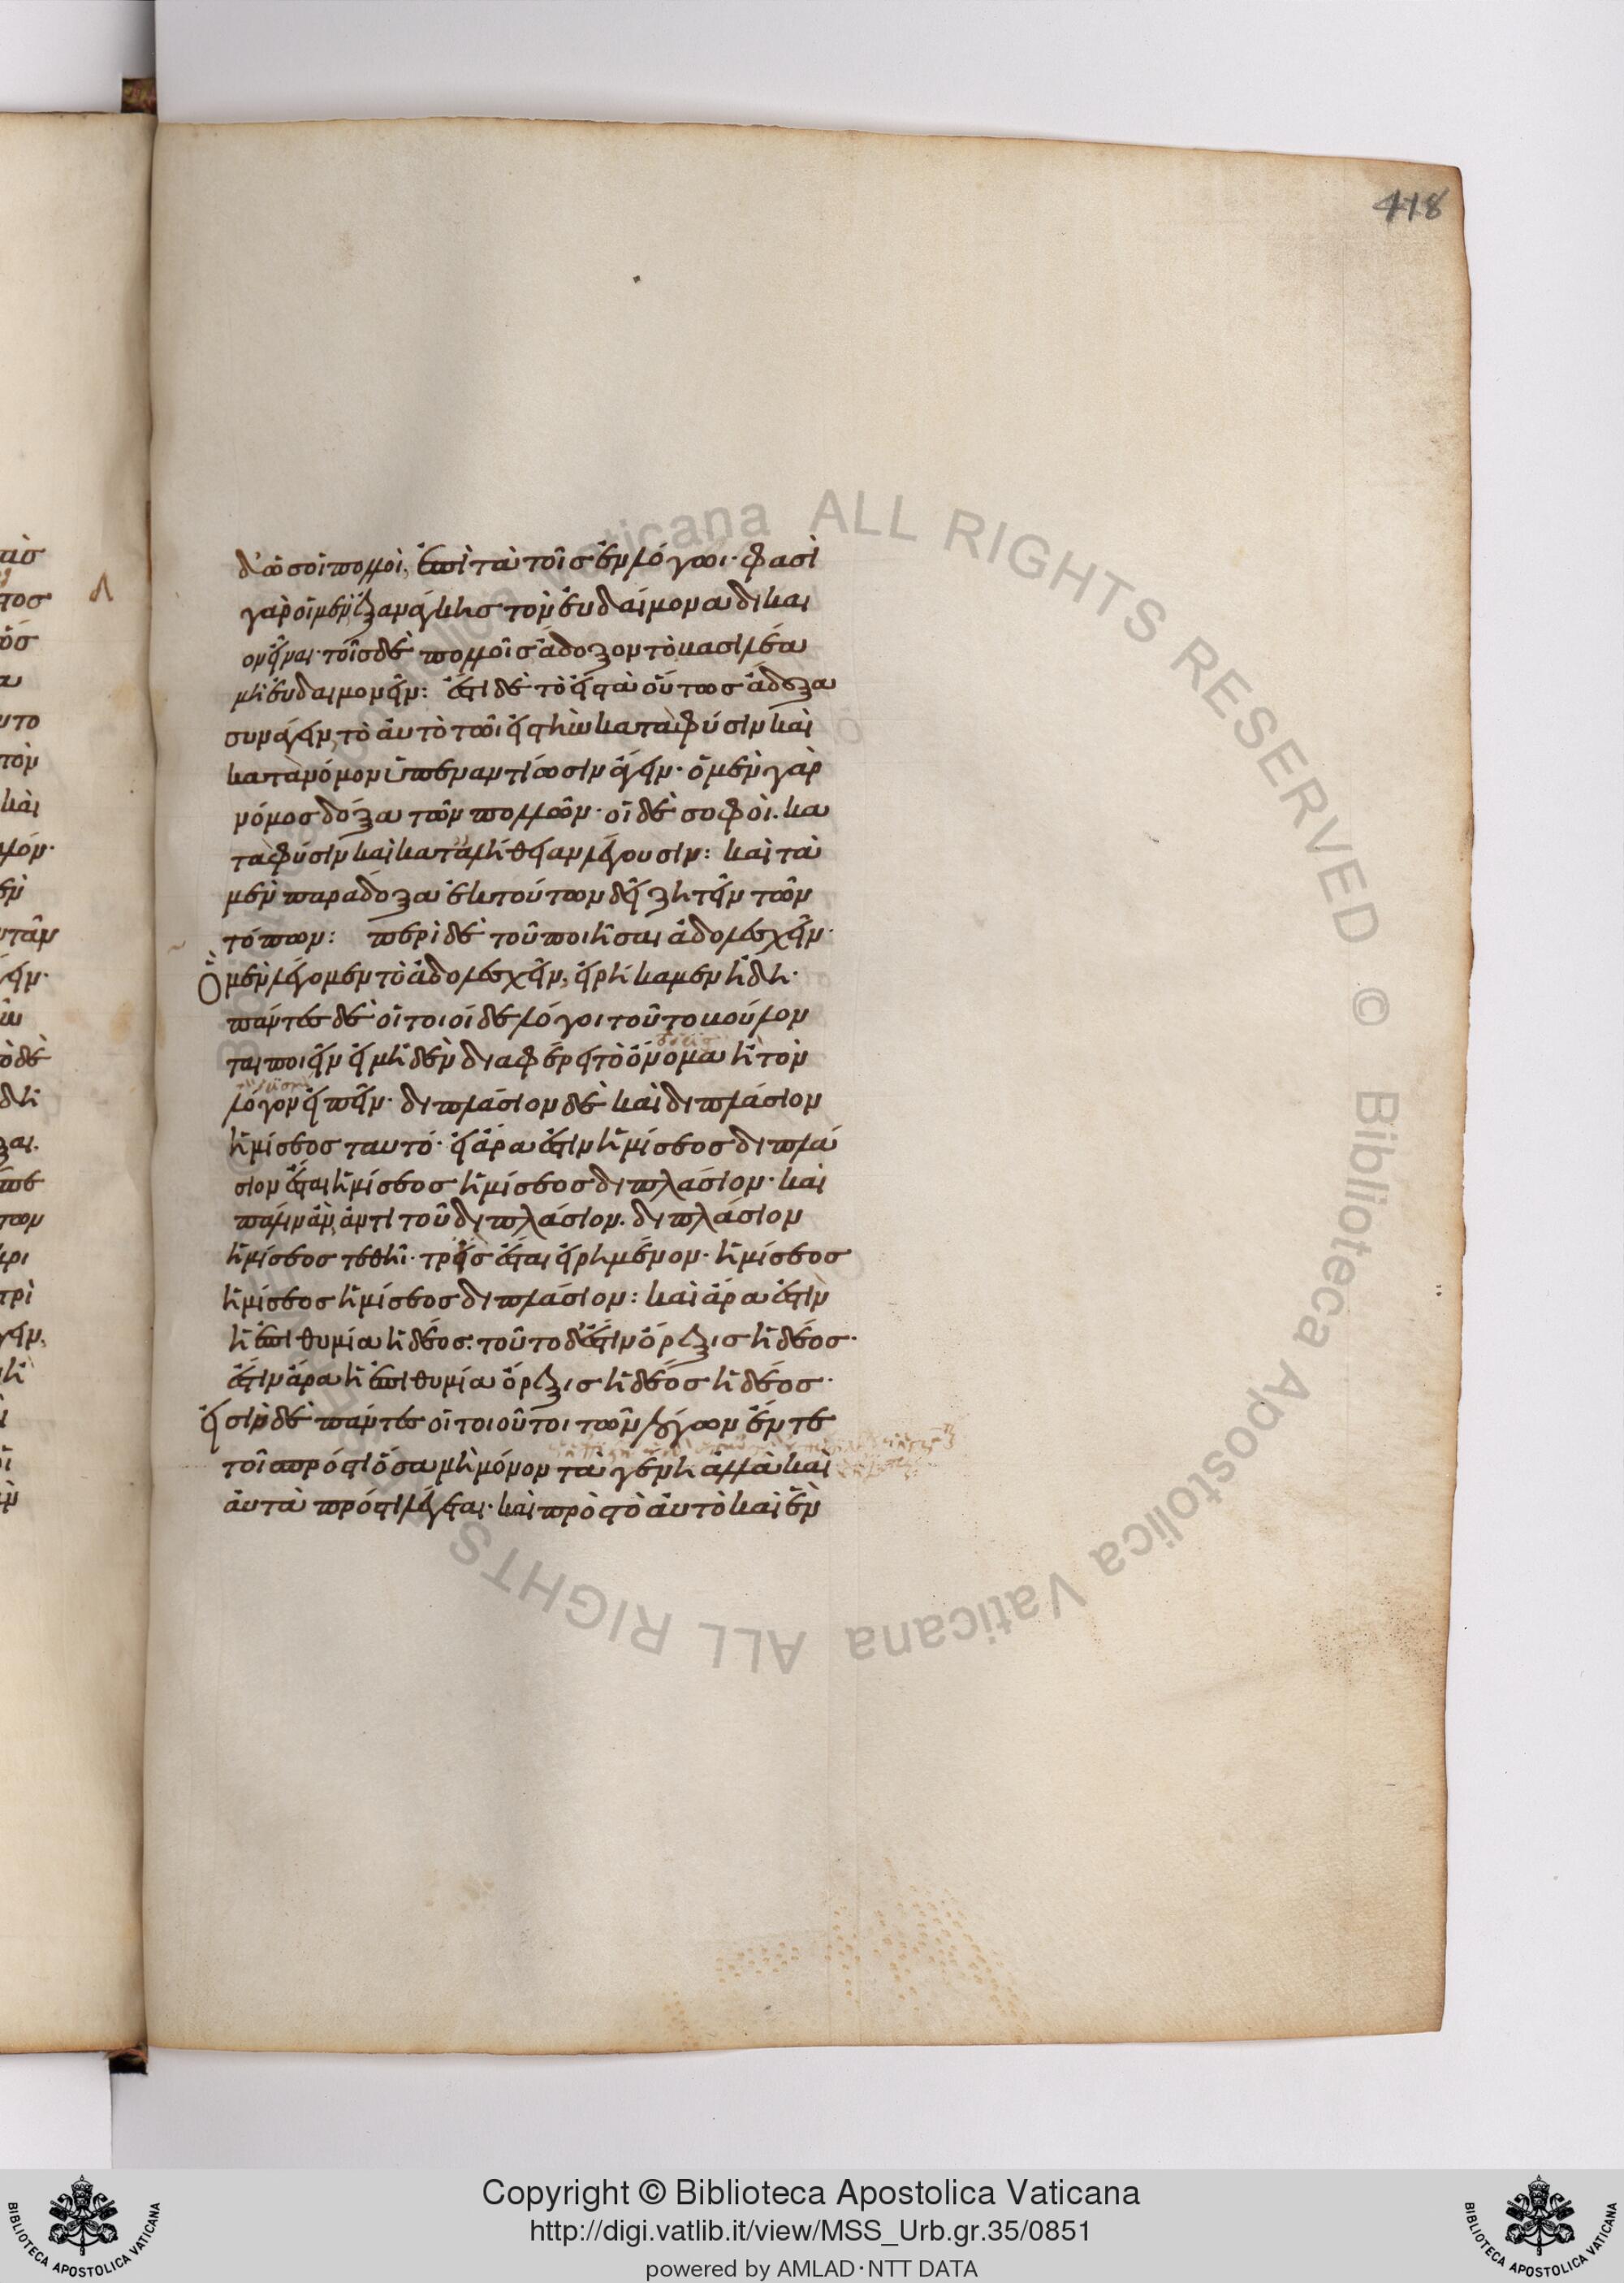 418
δ' ὡσ οἱ πολλοὶ, ἐπὶ τὰ τοῖσ ἐν λόγωι· φασὶ
γὰρ οἱ μὲν ἐξ ἀνάγκησ τὸν εὐδαίμονα δίκαι
ον εἶναι· τοῖσ δὲ πολλοῖσ ἄδοξον τὸ βασιλέα
μὴ εὐδαιμονεῖν: ἔστι δὲ τὸ εἰσ τὰ οὕτωσ ἄδοξα
συνάγειν, τὸ αὐτὸ τῶι εἰσ τὴν κατὰ φύσιν καὶ
κατὰ νόμον ὑπεναντίωσιν ἄγειν· ὁ μὲν γὰρ
νόμοσ δόξα τῶν πολλῶν· οἱ δὲ σοφοὶ. κα
τὰ φύσιν καὶ κατ' ἀλήθειαν λέγουσιν: καὶ τὰ
μὲν παράδοξα ἐκ τούτων δεῖ ζητεῖν τῶν
τόπων: περὶ δὲ τοῦ ποιῆσαι ἀδολεσχεῖν·
Ὃ μὲν λέγομεν τὸ ἀδολεσχεῖν, εἰρήκαμεν ἤδη·
πάντεσ δὲ οἱ τοιοίδε λόγοι τοῦτο βούλον
ται ποιεῖν εἰ μηδὲν διαφέρει τὸ ὄνομα ἢ τὸν
λόγον εἰπεῖν· διπλάσιον δὲ καὶ διπλάσιον
ἡμίσεοσ ταυτό· εἰ ἄρα ἐστὶν ἡμίσεοσ διπλά
σιον ἔσται ἡμίσεοσ ἡμίσεοσ διπλάσιον· καὶ
πάλιν ἂν, ἀντὶ τοῦ διπλάσιον. διπλάσιον
ἡμίσεοσ τεθῆι· τρεῖσ ἔσται εἰρημένον· ἡμίσεοσ
ἡμίσεοσ ἡμίσεοσ διπλάσιον: καὶ ἆρα ἐστὶν
ἡ ἐπιθυμία ἡδέοσ: τοῦτο δ' ἐστὶν ὄρεξισ ἡδέοσ·
ἔστιν ἄρα ἡ ἐπιθυμία ὄρεξισ ἡδέοσ ἡδέοσ·
εἰσὶν δὲ πάντεσ οἱ τοιοῦτοι τῶν λόγων ἔν τε
τοῖσ πρόστι ὅσα μὴ μόνον τὰ γένη ἀλλὰ καὶ
αὐτὰ πρόστι λέγεται· καὶ πρὸσ τὸ αὐτὸ καὶ ἓν
Copyright © Biblioteca Apostolica Vaticana
http://digi.vatlib.it/view/MSS_Urb.gr.35/0851
powered by AMLAD · NTT DATA